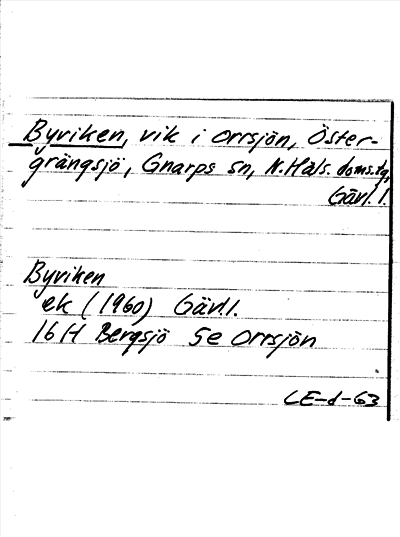 Byviken, vik i Orrsjön, Öster-
grängsjö, Gnarps sn, N. Häls. doms.tg,
Gävl. l.
Byviken
ek (1960) Gävl. l.
16 H Bergsjö 5e Orrsjön
LE-d-63